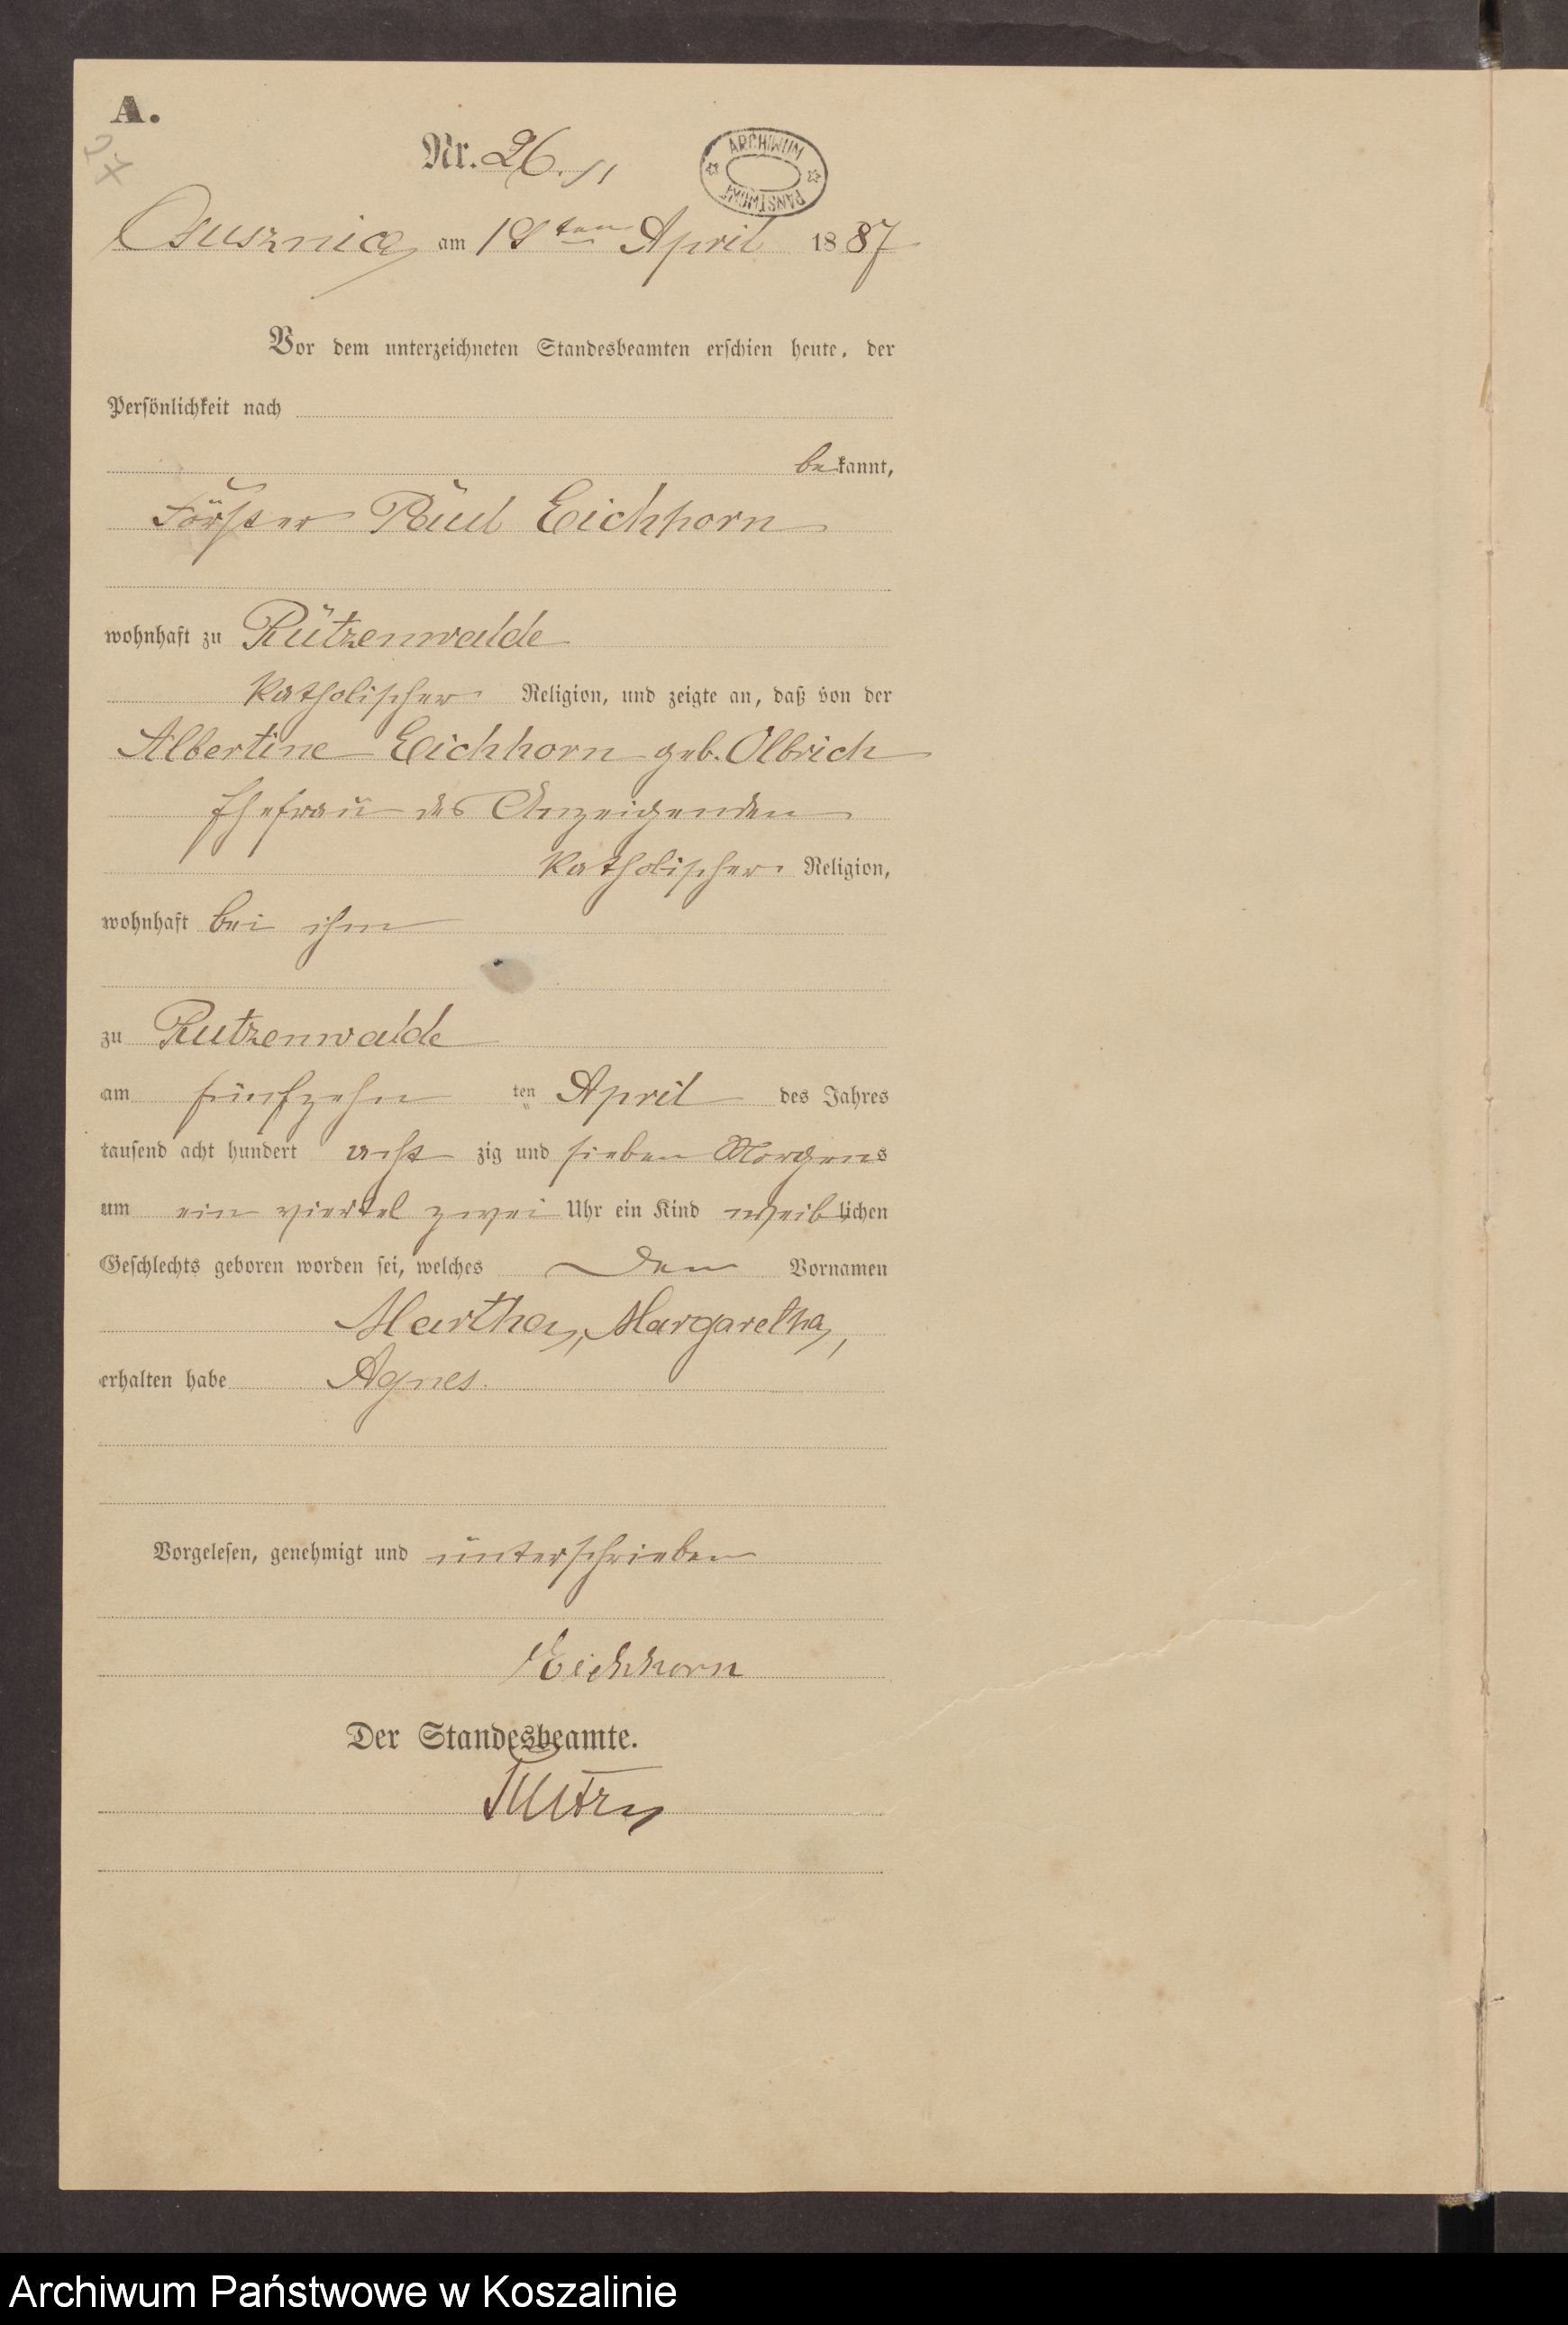 A.
27
Nr. 26.
ARCHIWUM PAŃSTWOWE
am 18ten April 1887
Vor dem unterzeichneten Standesbeamten erschien heute, der
Persönlichkeit nach
bekannt,
Förster Paul Eichhorn
wohnhaft zu Rützenwalde
katholischer Religion, und zeigte an, daß von der
Albertine Eichhorn geb. Olbrich
Ehefrau des Anzeigenden
katholischer Religion,
wohnhaft bei ihm
zu Rutzenwalde
am fünfzehn ten April des Jahres
tausend acht hundert acht zig und sieben Morgens
um ein viertel zwei Uhr ein Kind weiblichen
Geschlechts geboren worden sei, welches den Vornamen
Martha, Margaretha,
erhalten habe Agnes.
Vorgelesen, genehmigt und unterschrieben
Eichhorn
Der Standesbeamte.
Archiwum Państwowe w Koszalinie